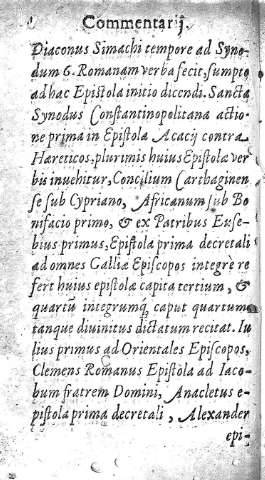 Commentarij.
Diaconus Simachi tempore ad Syno-
dum 6. Romanam verba fecit, sumpto
ad hac Epistola initio dicendi. Sancta
Synodus Constantinopolitana actio-
ne prima in Epistola Acacij contra
Hæreticos, plurimis huius Epistolæ ver
bis inuehitur, Concilium Carthaginen
se sub Cypriano, Africanum sub Bo
nifacio primo, & ex Patribus Euse-
bius primus, Epistola prima decretali
ad omnes Galliæ Episcopos integrè re
fert huius epistolæ capita tertium, &
quartū integrumq; caput quartum
tanque diuinitus dictatum recitat. Iu
lius primus ad Orientales Episcopos,
Clemens Romanus Epistola ad Iaco-
bum fratrem Domini, Anacletus e-
pistola prima decretali, Alexander
epi-